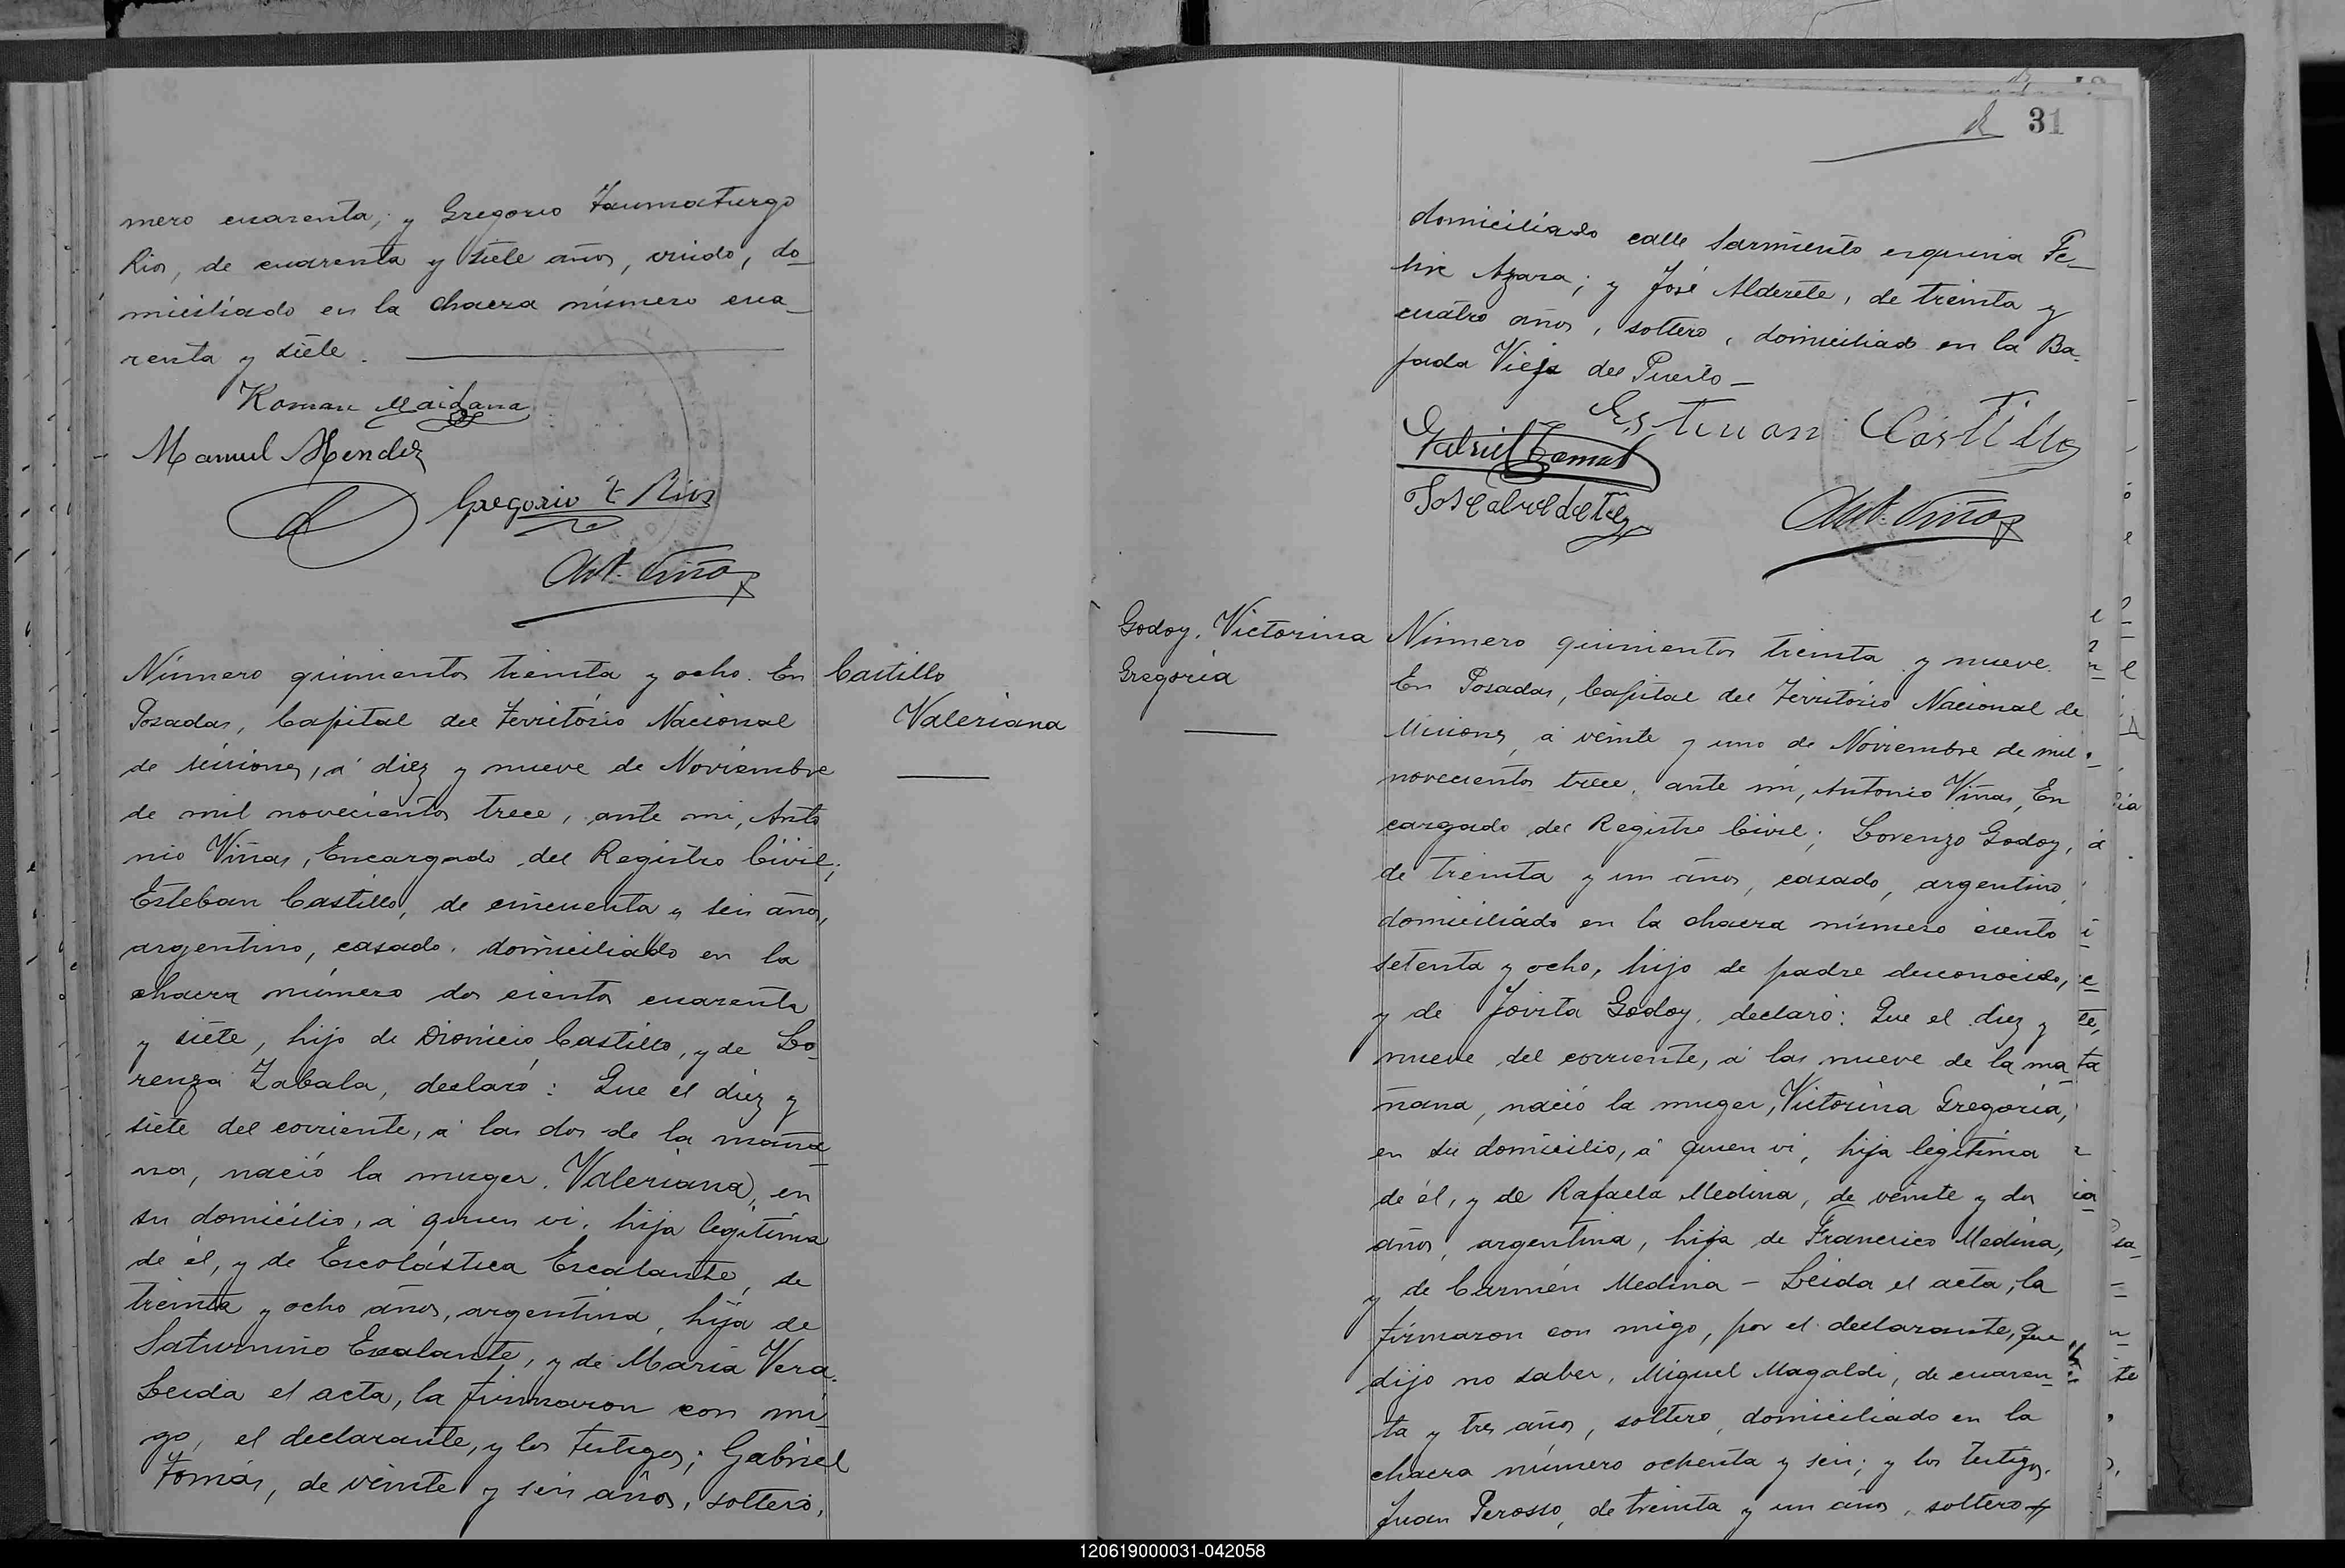 mero cuarenta, y Gregorio Taumaturgo
Rios, de cuarenta y siete años, viudo, do-
miciliado en la chacra número cua-
renta y siete.
Roman Maidana
Manuel Mendez
Gregorio T Rios
Ant. Viñas
Número quinientos treinta y ocho. En
Posadas, Capital del Territorio Nacional
de Misiones, á diez y nueve de Noviembre
de mil novecientos trece, ante mi, Anto
nio Viñas, Encargado del Registro Civil;
Esteban Castillo, de cincuenta y seis años,
argentino, casado, domiciliado en la
chacra número dos cientos cuarenta
y siete, hijo de Dionicio Castillo, y de Lo-
renza Zabala, declaró: Que el diez y
siete del corriente, á las dos de la maña-
na, nació la muger, Valeriana, en
su domicilio, á quien vi, hija legítima
de él, y de Escolástica Escalante, de
treinta y ocho años, argentina, hija de
Saturnino Escalante, y de Maria Vera.
Leida el acta, la firmaron con mi-
go, el declarante, y los testigos; Gabriel
Tomás, de veinte y seis años, soltero,
Castillo
Valeriana
31
domiciliado calle Sarmiento esquina Fe-
lix Azara; y José Alderete, de treinta y
cuatro años, soltero, domiciliado en la Ba-
jada Vieja del Puerto—
Estevan Castillo
Gabriel Tomas
Ant. Viñas
Godoy, Victorina
Gregoria
Número quinientos treinta y nueve.
En Posadas, Capital del Territorio Nacional de
Misiones, á veinte y uno de Noviembre de mil
novecientos trece, ante mi, Antonio Viñas, En
cargado del Registro Civil; Lorenzo Godoy,
de treinta y un años, casado, argentino,
domiciliado en la chacra número ciento
setenta y ocho, hijo de padre desconocido,
y de Jovita Godoy, declaró: Que el diez y
nueve del corriente, á las nueve de la ma-
ñana, nació la muger, Victorina Gregoria,
en su domicilio, á quien vi, hija legítima
de él, y de Rafaela Medina, de veinte y dos
años, argentina, hija de Francisco Medina,
y de Carmén Medina — Leida el acta, la
firmaron con migo, por el declarante, que
dijo no saber, Miguel Magaldi, de cuaren-
ta y tres años, soltero, domiciliado en la
chacra número ochenta y seis; y los testigos,
Juan Perosso, de treinta y un años, soltero
120619000031-042058